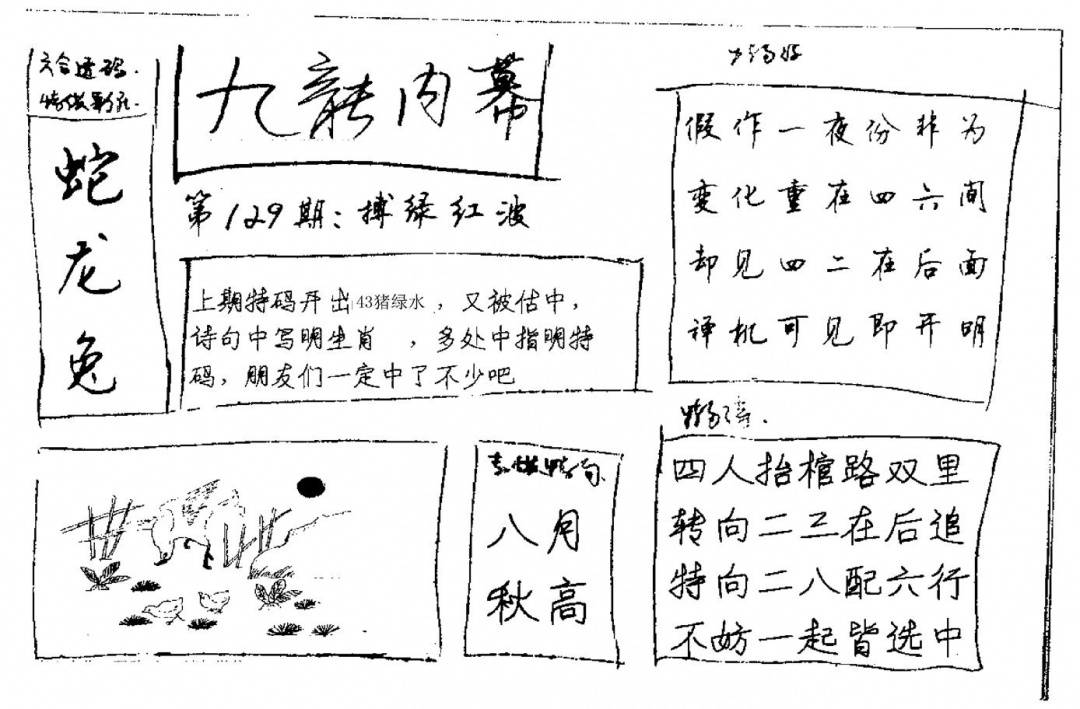 六合透码.
蛇
龙
兔
九龍内幕
第129期：搏绿红波
上期特码开出43猪绿水，又被估中，
诗句中写明生肖 ，多处中指明特
码，朋友们一定中了不少吧
假作一夜份非为
变化重在四六间
却见四二在后面
译机可见即开明
八月
秋高
四人抬棺路双里
转向二三在后追
特向二八配六行
不妨一起皆选中